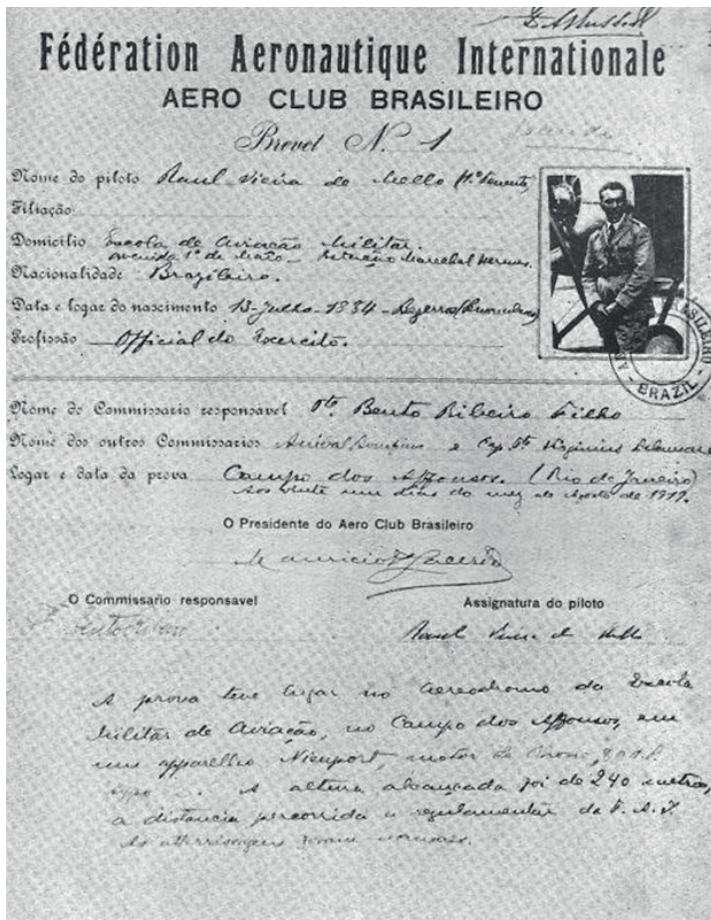 Fédération Aeronautique Internationale
AERO CLUB BRASILEIRO
Brevet N. 1
Nome do piloto Raul Vieira de Mello (1º Tenente)
Filiação
Domicilio Escola de Aviação Militar.
avenida 1º de Maio - Estação Marechal Hermes.
Nacionalidade Brazileiro.
Data e logar do nascimento 13-Julho-1884-Bezerros (Pernambuco)
Profissão Official do Exercito.
Nome do Commissario responsavel Bento Ribeiro Filho
Nome dos outros Commissarios e Cap. Virginius
Logar e data da prova Campo dos Affonsos. (Rio de Janeiro)
aos vinte um dias do mez de Agosto de 1919.
BRAZIL
O Presidente do Aero Club Brasileiro
Mauricio Lacerda
O Commissario responsavel
Assignatura do piloto
Raul Vieira de Mello
A prova teve lugar no aerodromo da Escola
Militar de Aviação, no Campo dos Affonsos, em
um apparelho Nieuport, motor Le Rhone, 80 H.P.
A altura alcançada foi de 240 metros,
a distancia percorrida a regulamentar da F. A. I.
As atterrissagens foram normaes.